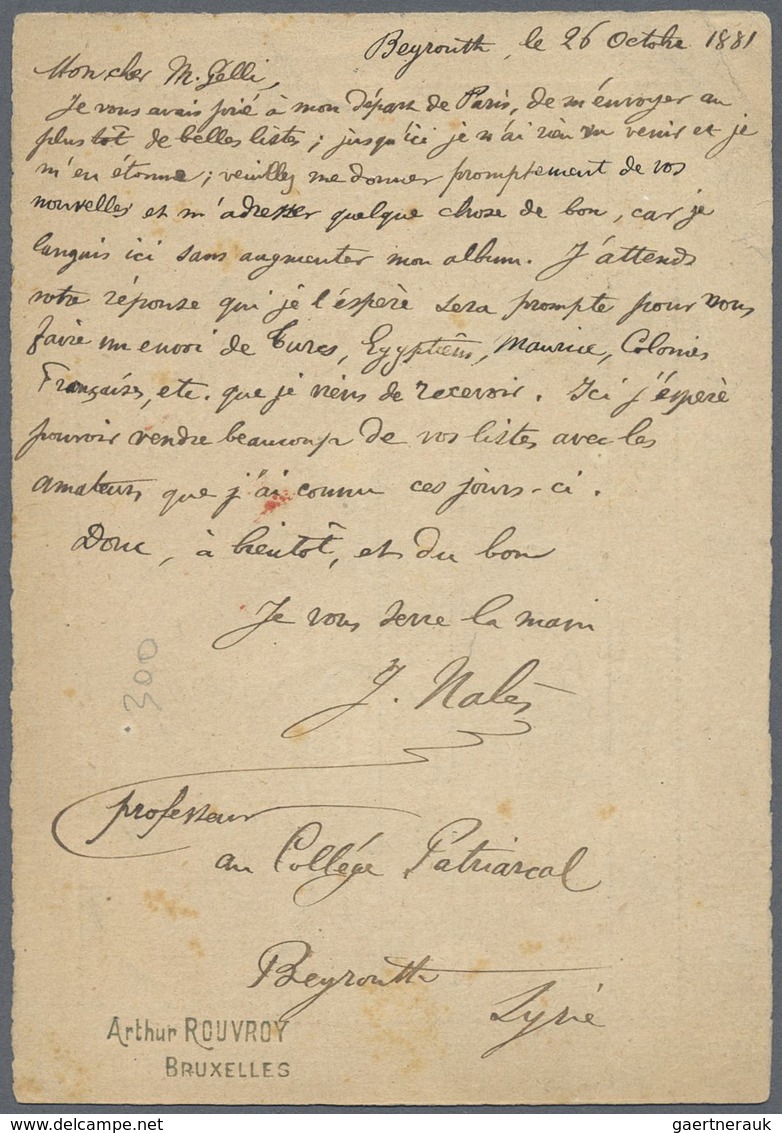 Beyrouth, le 26 Octobre 1881
Mon cher M. Gelli,
Je vous avais prié à mon départ de Paris, de m'envoyer au
plus tôt de belles listes ; jusqu'ici je n'ai rien vu venir et je
m'en étonne ; veuillez me donner promptement de vos
nouvelles et m'adresser quelque chose de bon, car je
languis ici sans augmenter mon album. J'attends
votre réponse qui je l'espère sera prompte pour vous
faire un envoi de Turcs, Egyptiens, Maurice, Colonies
Françaises, etc. que je viens de recevoir. Ici j'espère
pouvoir vendre beaucoup de vos listes avec les
amateurs que j'ai connu ces jours-ci.
Donc, à bientôt, et du bon
Je vous serre la main
J. Nalès
300
professeur
au Collége Patriarcal
Beyrouth
Syrie
Arthur ROUVROY
BRUXELLES
www.delcampe.net
gaertnerauk